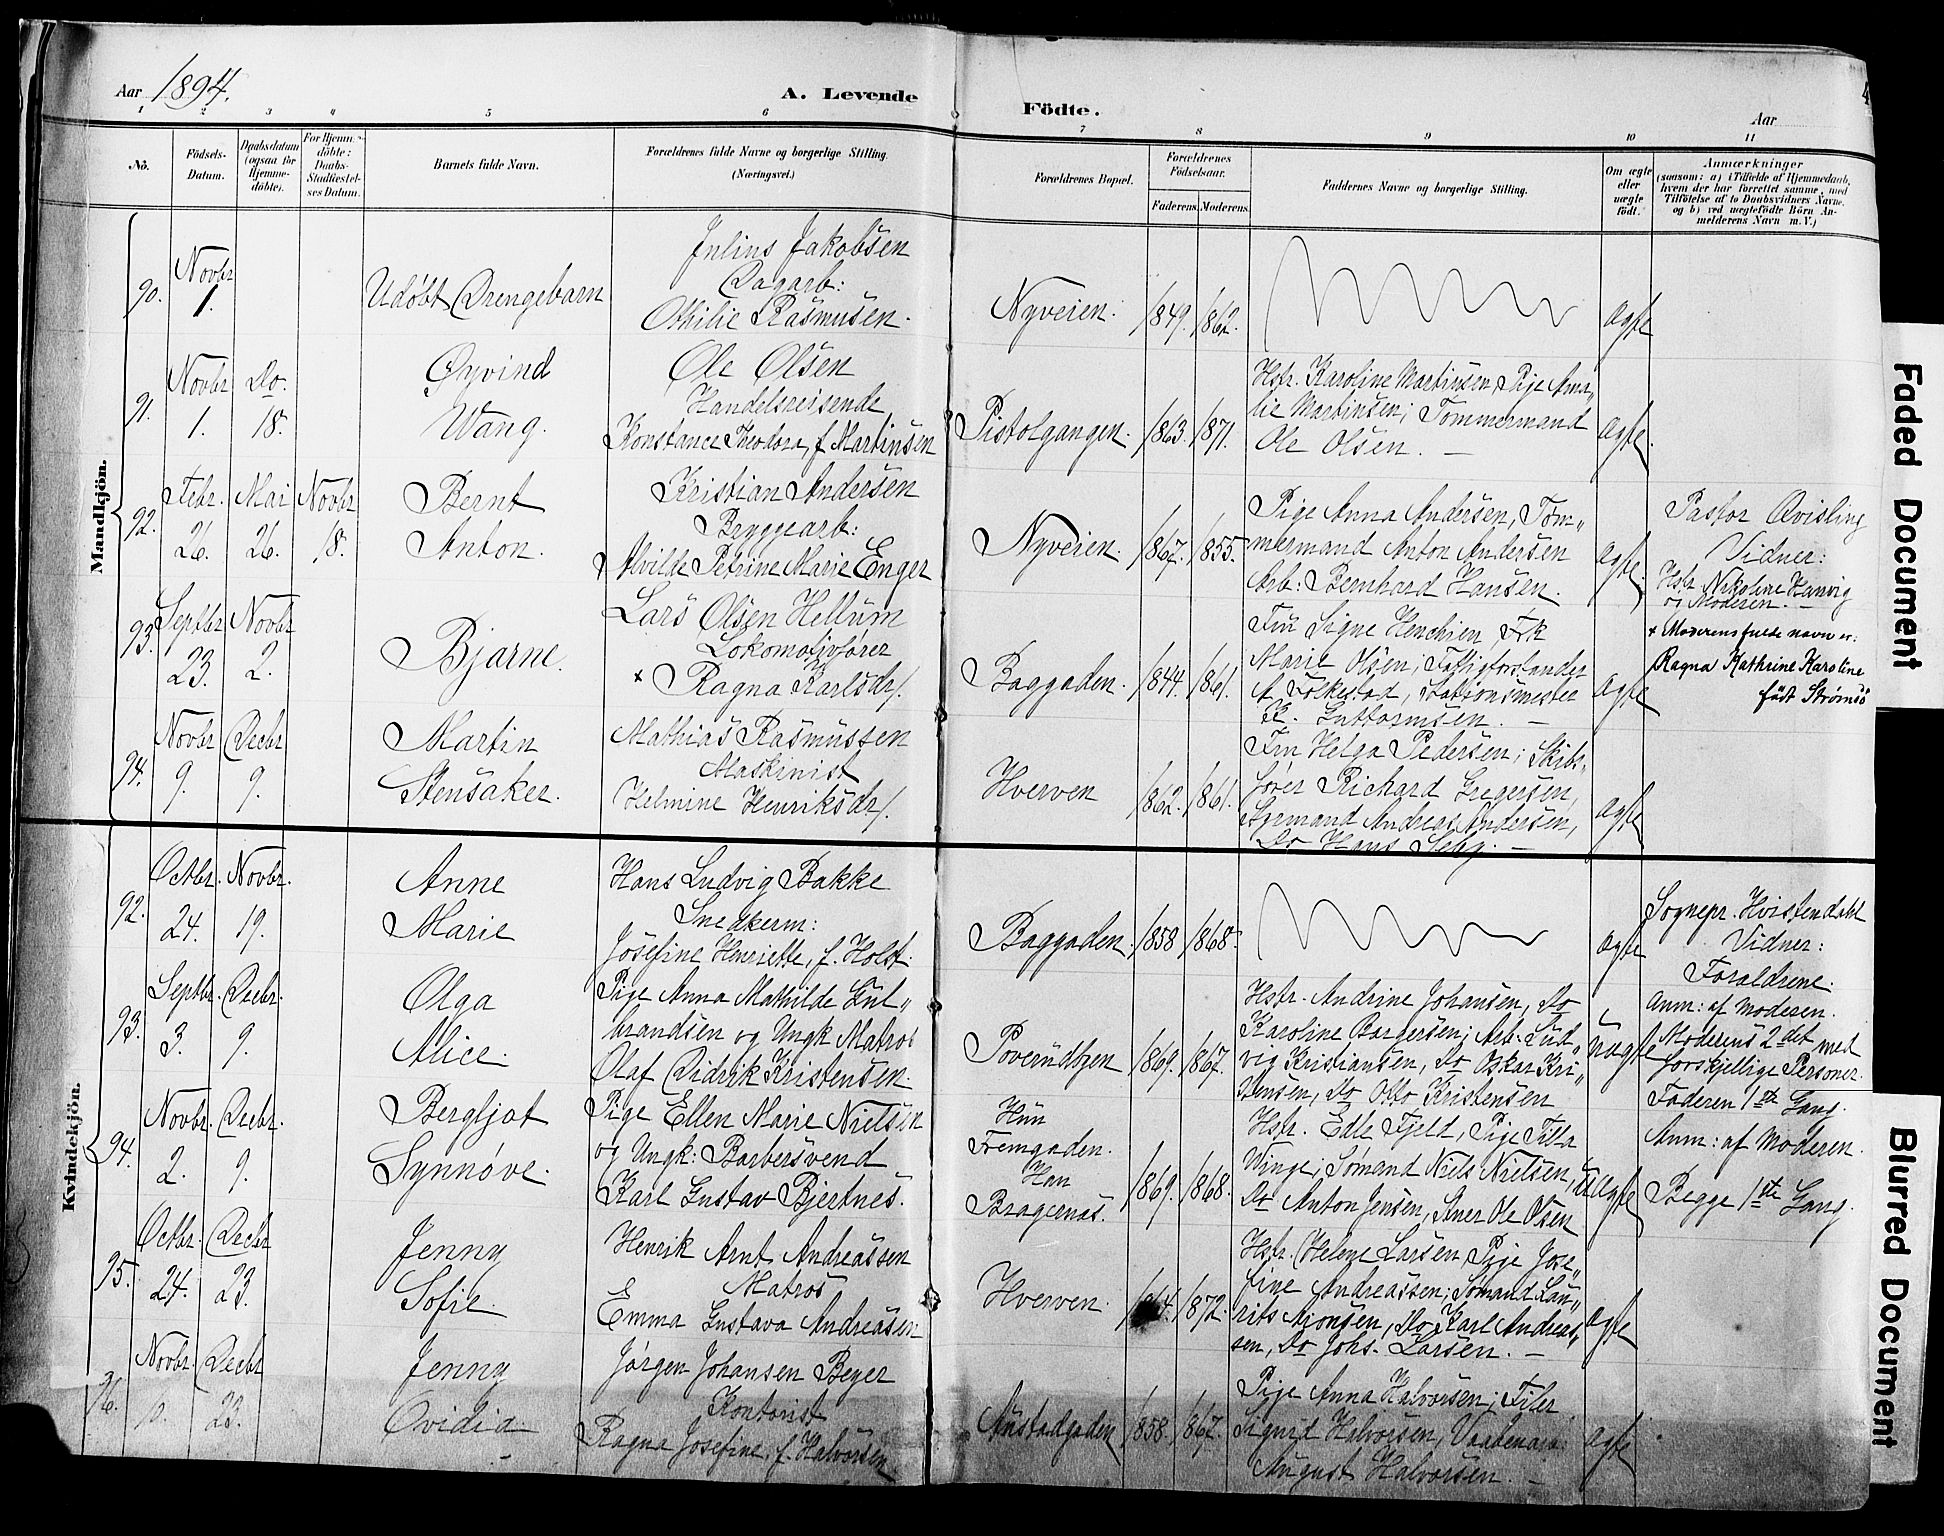 Aar 1894.
A. Levende Födte.
Aar
1 2 3 4 5 6 7 8 9 10 11
No.
Födsels-
Datum.
Daabsdatum
(ogsaa for
Hjemme-
döbte).
For Hjemme-
döbte:
Daabs-
Stadfæstel-
ses Datum.
Barnets fulde Navn.
Forældrenes fulde Navne og borgerlige Stilling.
(Næringsvei.)
Forældrenes Bopæl.
Forældrenes
Födselsaar.
Faderens. Moderens.
Faddernes Navne og borgerlige Stilling.
Om ægte
eller
uægte
födt.
Anmærkninger
(saasom: a) i Tilfælde af Hjemmedaab,
hvem der har forrettet samme, med
Tilföielse af to Daabsvidners Navne,
og b) ved uægtefödte Börn An-
melderens Navn m. V.)
Mandkjön.
90.
Novbr
1.
Udøbt Drengebarn
Julius Jakobsen
Dagarb:
Othilie Rasmusen.
Nyveien.
1849. 1862.
ægte
91.
Novbr Do.
1. 18.
Øyvind
Wang.
Ole Olsen
Handelsreisende
Konstance Theodora, f. Martinsen
Pistolgangen.
1863. 1871.
Hstr. Karoline Martinsen, Pige Ama-
lie Martinsen; Tømmermand
Ole Olsen. —
ægte.
92.
Febr. Mai Novbr
26. 26. 18.
Bernt
Anton.
Kristian Andersen
Bryggearb:
Alvilde Petrine Marie Enger
Nyveien.
1867. 1855.
Pige Anna Andersen, Tøm-
mermand Anton Andersen
Arb: Bernhard Hansen.
ægte.
Pastor Qvisling
Vidner:
Hstr. Nikoline Hanvig
og Moderen. —
93.
Septbr Novbr
23. 2.
Bjarne.
Lars Olsen Hellum
Lokomotivfører
× Ragna Karlsdr.
Baggaden.
1844. 1861.
Frú Signe Henchien, Frk
Marie Olsen; Fattigforstander
A. Folkestad, Stationsmester
K. Guttormsen. —
ægte
× Moderens fulde navn er:
Ragna Kathrine Karoline
født Strømsö
94.
Novbr Decbr
9. 9.
Martin
Stensaker.
Mathias Rasmussen
Maskinist
Helmine Henriksdr.
Hverven
1862. 1861.
Frú Helga Pedersen; Skibs-
fører Richard Gregersen,
Styrmand Andreas Andersen,
Do Hans Seby. —
ægte
Kvindekjön.
92.
Octbr. Novbr.
24. 19.
Anne
Marie
Hans Ludvig Bakke
Snedkerm:
Josefine Henriette, f. Holst.
Baggaden.
1858 1868.
ægte
Sognepr. Hvistendahl
Vidner:
Forældrene.
93.
Septbr. Decbr.
3. 9.
Olga
Alice.
Pige Anna Mathilde Gul-
brandsen og Ungk. Matros
Olaf Didrik Kristensen.
Poverudbyen
1869. 1867.
Hstr. Andrine Johansen, Do
Karoline Borgersen; Arb. Lud-
vig Kristiansen, Do Oskar Kri-
stensen, Do Otto Kristensen
uægte
Anm: af Moderen.
Moderens 2det med
forskjellige Personer
Faderen 1ste Gang.
94.
Novbr. Decbr.
2. 9.
Bergljot
Synnøve.
Pige Ellen Marie Nielsen
og Ungk: Barbersvend
Karl Gustav Bjertnes.
Hun
Fremgaden.
Han
Bragernæs.
1869. 1868.
Hstr. Edle Fjeld, Pige Tilla
Winge; Sømand Niels Nielsen,
Do Anton Jensen, Stuer Ole Olsen
uægte
Anm: af Moderen.
Begge 1ste Gang.
95.
Octbr. Decbr
24. 23.
Jenny
Sofie.
Henrik Arnt Andreassen
Matros
Emma Gustava Andreasen
Hverven.
1872.
Hstr. Helene Larsen, Pige Jose-
fine Andreassen; Sømand Lau-
rits Aronsen, Do Karl Andreas-
sen, Do Johs. Larsen. —
ægte
96.
Novbr. Decbr
23.
Jenny
Ovidia
Jørgen Johansen Beyer
Kontorist
Ragna Josefine, f. Halvorsen
Austadgaden
1858. 1867.
Pige Anna Halvorsen; Filer
Sigurd Halvorsen, Vaabenarb:
August Halvorsen. —
ægte
Faded Document
Blurred Document